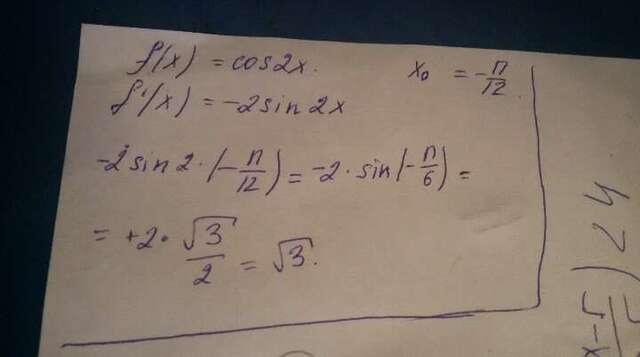 f(x) = cos2x. x₀ = -π/12.
f'(x) = -2sin2x
-2sin2·(-π/12) = -2·sin(-π/6) =
= +2·√3/2 = √3.